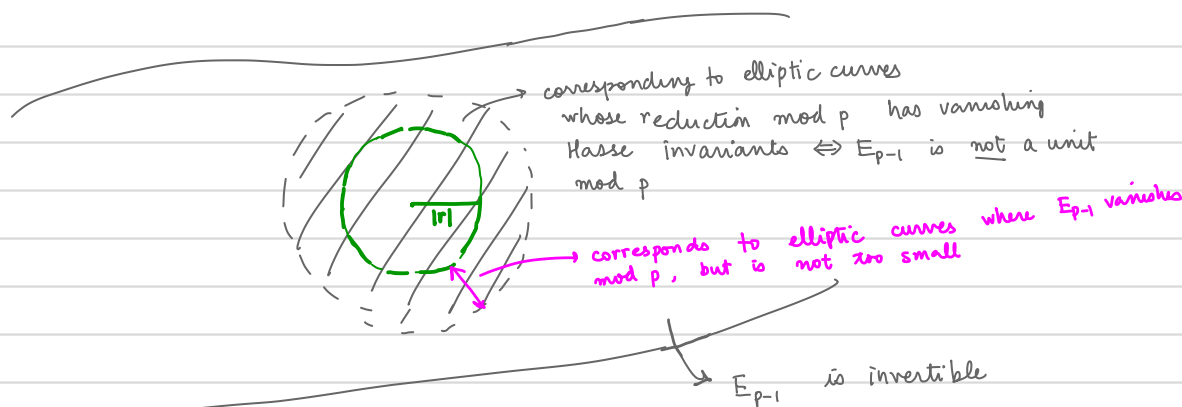 corresponding to elliptic curves
whose reduction mod p has vanishing
Hasse invariants ⇔ E_{p-1} is not a unit
mod p
|r|
corresponds to elliptic curves where E_{p-1} vanishes
mod p, but is not too small
E_{p-1} is invertible